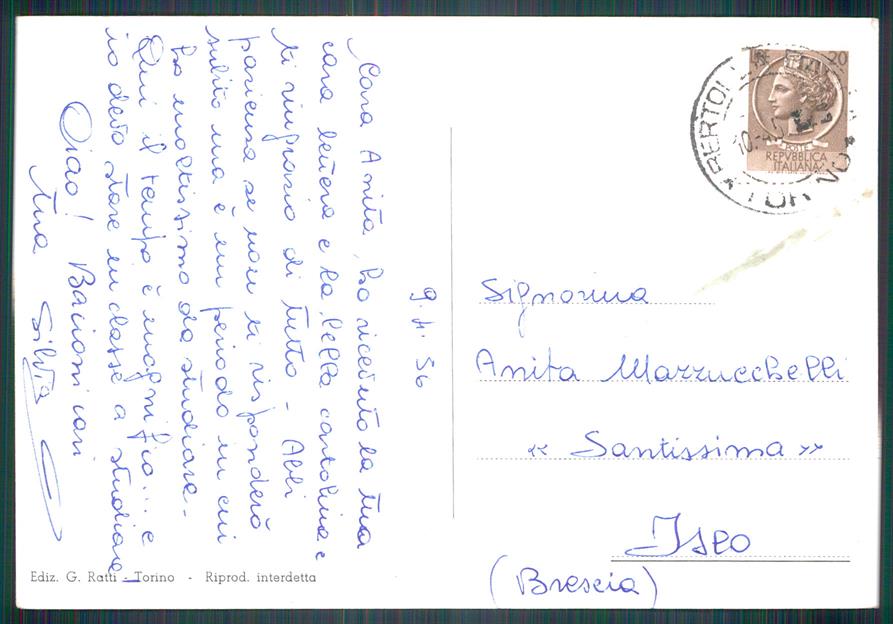 9.4.56
Cara Anita, ho ricevuto la tua
cara lettera e la bella cartolina e
ti ringrazio di tutto - Abbi
pazienza se non ti risponderò
subito ma è un periodo in cui
ho moltissimo da studiare -
Qui il tempo è magnifico... e
io devo stare in classe a studiare
Ciao! Bacioni cari
tua Silvia
Ediz. G. Ratti - Torino - Riprod. interdetta
L. 20
POSTE
REPVBBLICA
ITALIANA
TORINO
Signorina
Anita Mazzucchelli
« Santissima »
Iseo
(Brescia)